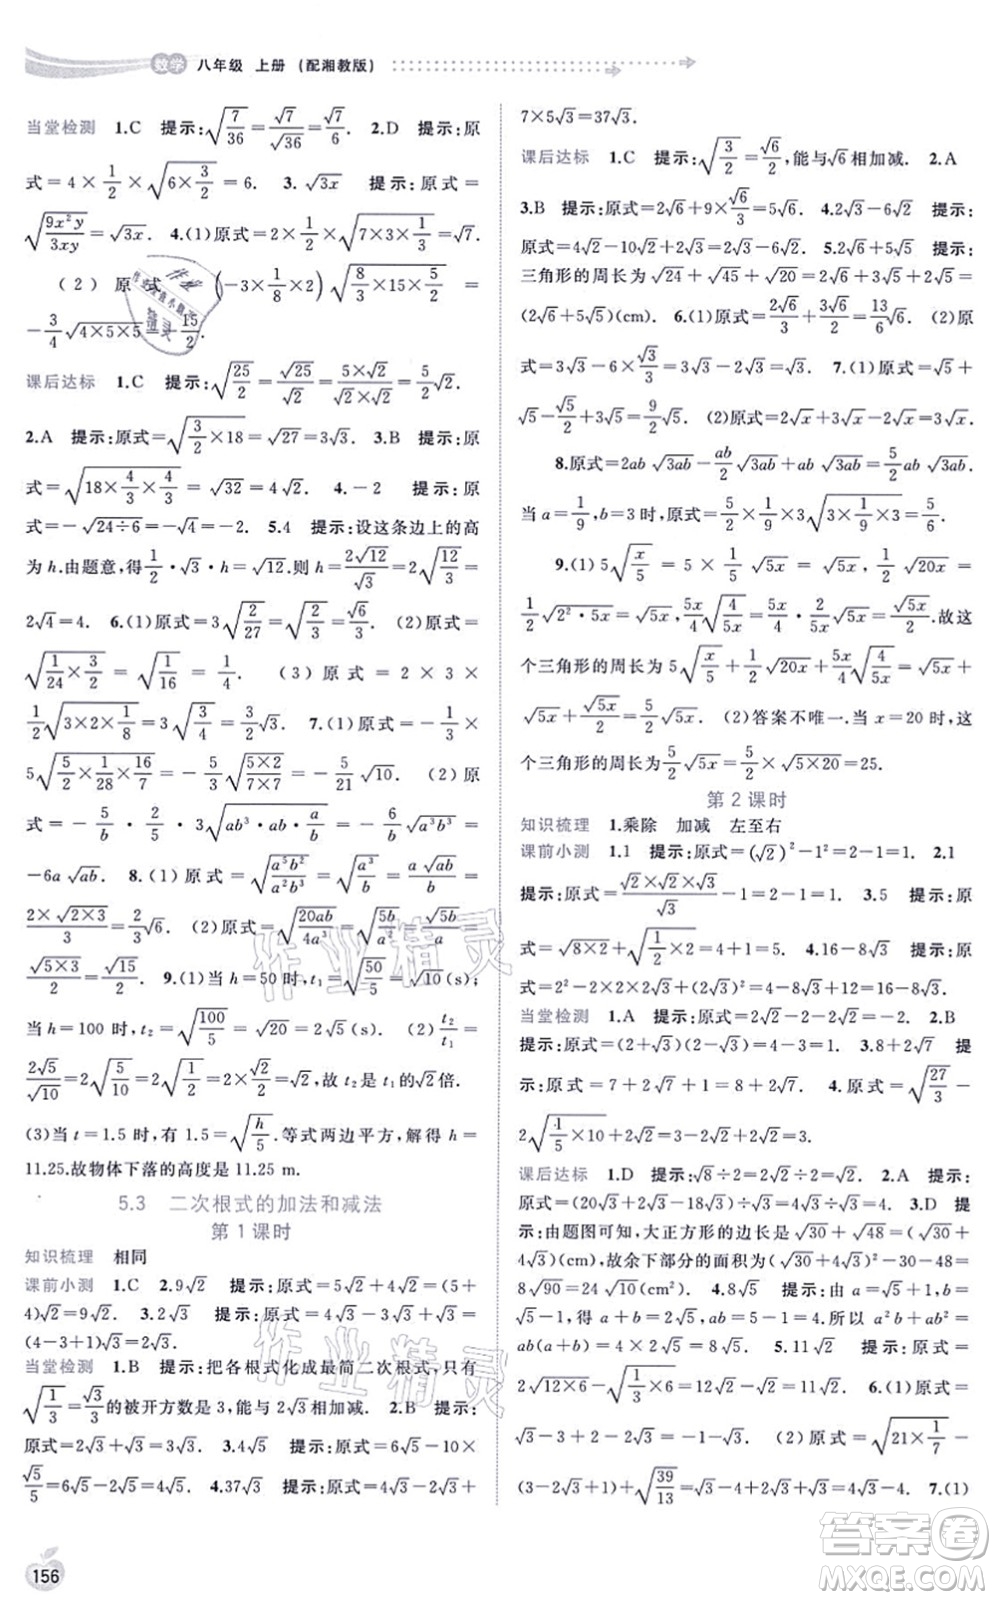 数学 八年级 上册 (配湘教版)
当堂检测 1.C 提示:√(7/36)=√7/√36=√7/6. 2.D 提示:原
式=4×1/2×√(6×3/2)=6. 3. √(3x) 提示:原式=
√(9x²y/3xy)=√(3x). 4.(1)原式=2×1/2×√(7×3×1/3)=√7.
(2) 原 式
(-3×1/8×2)√(8/3×15×5/2)=
-3/4√(4×5×5
15/2.
课后达标 1.C 提示:√(25/2)=√25/√2=(5×√2)/(√2×√2)=5/2√2.
2.A 提示:原式=√(3/2×18)=√27=3√3. 3.B 提示:原
式=√(18×4/3×4/3)=√32=4√2. 4.-2 提示:原
式=-√(24÷6)=-√4=-2. 5.4 提示:设这条边上的高
为h.由题意,得1/2·√3·h=√12.则h=2√12/√3=2√(12/3)=
2√4=4. 6.(1)原式=3√(2/27)=√(2/3)=√6/3. (2)原式=
√(1/24×3/2)=√(1/16)=1/4. (3)原式=2×3×
1/2√(3×2×1/8)=3√(3/4)=3/2√3. 7.(1)原式=-1/3×
5√(5/2×1/28×16/7)=-5/3√((5×2)/(7×7))=-5/21√10. (2)原
式=-5/b·2/5·3√(ab³·a/b)=-6/b√(a³b³)=
-6a√ab. 8.(1)原式=√(a⁵b²/a²b³)=√(a³/b). (2)原式=
(2×√(2×3))/3=2/3√6. (2)原式=√(20ab/4a³)=√(5b/a²)
√(5×3)/3=√15/3. 9.(1)当h=50时,t₁=√(50/5)=√10(s);
当h=100时,t₂=√(100/5)=√20=2√5(s). (2)t₂/t₁=
2√5/√10=2√(5/10)=2√(1/2)=√2,故t₂是t₁的√2倍.
(3)当t=1.5时,有1.5=√(h/5).等式两边平方,解得h=
11.25.故物体下落的高度是11.25 m.
5.3 二次根式的加法和减法
第1课时
知识梳理 相同
课前小测 1.C 2.9√2 提示:原式=5√2+4√2=(5+
4)√2=9√2. 3.2√3 提示:原式=4√3-3√3+√3=
(4-3+1)√3=2√3.
当堂检测 1.B 提示:把各根式化成最简二次根式,只有
√(1/3)=√3/3的被开方数是3,能与2√3相加减. 2.B 提示:
原式=2√3+√3=3√3. 3.4√5 提示:原式=6√5-10×
√5/5=6√5-2√5=4√5. 4.37√3 提示:原式=2√3+
7×5√3=37√3.
课后达标 1.C 提示:√(3/2)=√6/2,能与√6相加减. 2.A
3.B 提示:原式=2√6+9×√6/3=5√6. 4.2√3-6√2 提示:
原式=4√2-10√2+2√3=2√3-6√2. 5.2√6+5√5 提示:
三角形的周长为√24+√45+√20=2√6+3√5+2√5=
(2√6+5√5)(cm). 6.(1)原式=2√6/3+3√6/2=13√6/6. (2)原
式=3√3-6×√3/3=3√3-2√3=√3. 7.(1)原式=√5+
√5-√5/2+3√5=9/2√5. (2)原式=2√x+3√x-2√x=3√x.
8.原式=2ab√3ab-ab/2√3ab+ab√3ab=5/2ab√3ab.
当a=1/9,b=3时,原式=5/2×1/9×3√(3×1/9×3)=5/6.
9.(1)5√(x/5)=5×1/5√5x=√5x. 1/2√20x=
1/2√(2²·5x)=√5x. 5x/4√(4/5x)=5x/4·2/5x√5x=√5x/2.故这
个三角形的周长为5√(x/5)+1/2√20x+5x/4√(4/5x)=√5x+
√5x+√5x/2=5/2√5x. (2)答案不唯一.当x=20时,这
个三角形的周长为5/2√5x=5/2×√(5×20)=25.
第2课时
知识梳理 1.乘除 加减 左至右
课前小测 1.1 提示:原式=(√2)²-1²=2-1=1. 2.1
提示:原式=(√2×√2×√3)/√3-1=2-1=1. 3.5 提示:原
式=√(8×2)+√(1/2×2)=4+1=5. 4.16-8√3 提示:
原式=2²-2×2×2√3+(2√3)²=4-8√3+12=16-8√3.
当堂检测 1.A 提示:原式=2√2-2-2√2=-2. 2.B
提示:原式=(2+√3)(2-√3)=4-3=1. 3.8+2√7 提
示:原式=7+2√7+1=8+2√7. 4.原式=√(27/3)-
2√(1/5×10)+2√2=3-2√2+2√2=3.
课后达标 1.D 提示:√8÷√2=√4=2. 2.A 提示:
原式=(20√3+12√3-16√3)÷4=4√3. 3.D 提示:
由题图可知,大正方形的边长是√30+√48=(√30+
4√3)cm,故余下部分的面积为(√30+4√3)²-30-48=
8√90=24√10(cm²).
√5-1,得a+b=2√5,ab=4.所以a²b+ab²=
ab(a+b)=4×2√5=8√5. 5.原式=
2√(12×6)=
6.(1)原式=
√3-3+2√3-3√3=-√3. (2)原式=√(21×1/7)-
(3-2√3+1)+√(39/13)=√3-4+2√3+√3=4√3-4. 7.(1)
156
作业精灵
作业精灵
答案圈
MXQE.COM